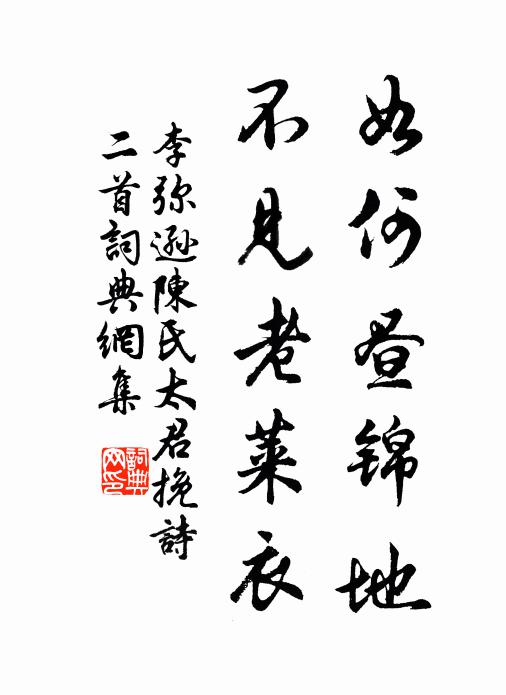 如何昼锦地
不见老菜衣
李弥遜陳氏太君挽詩
二首詞典網集
詞典
网印